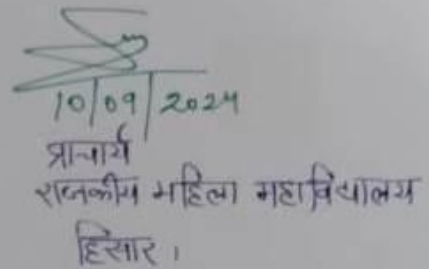 10/09/2024
प्राचार्य
राजकीय महिला महाविद्यालय
हिसार।